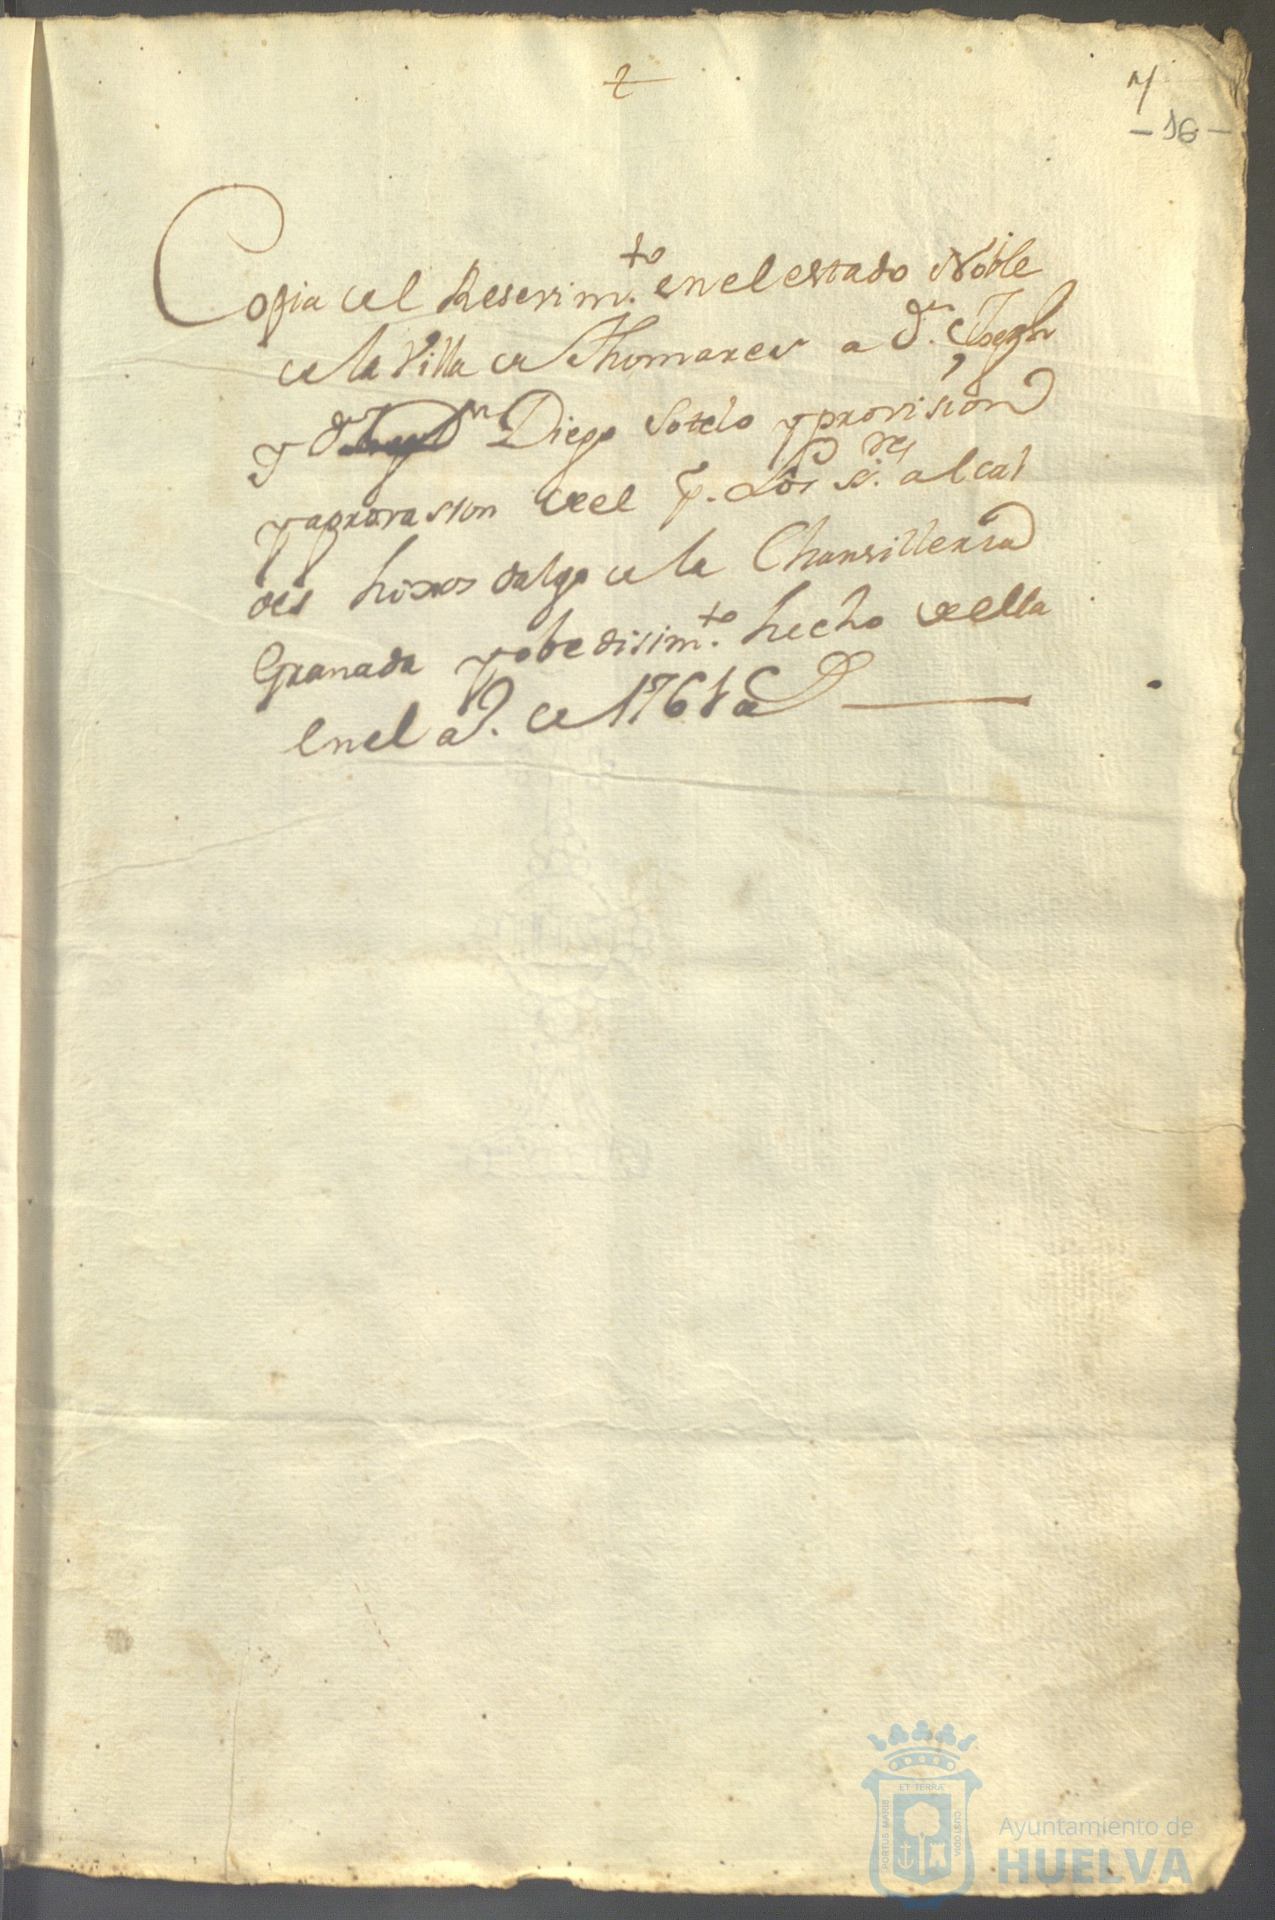 2
7
- 16 -
Copia del Resevim.to en el estado Noble
de la Villa de Thomares a d.n Joseph
y d.n Diego Sotelo y provision
y aprovasion de el p. Los s.res alcal
des hixos dalgo de la Chansilleria
Granada y obedisim.to hecho de ella
en el a.o de 1761 a
ET TERRÆ
PORTUS MARIS
CUSTODIA
Ayuntamiento de
HUELVA